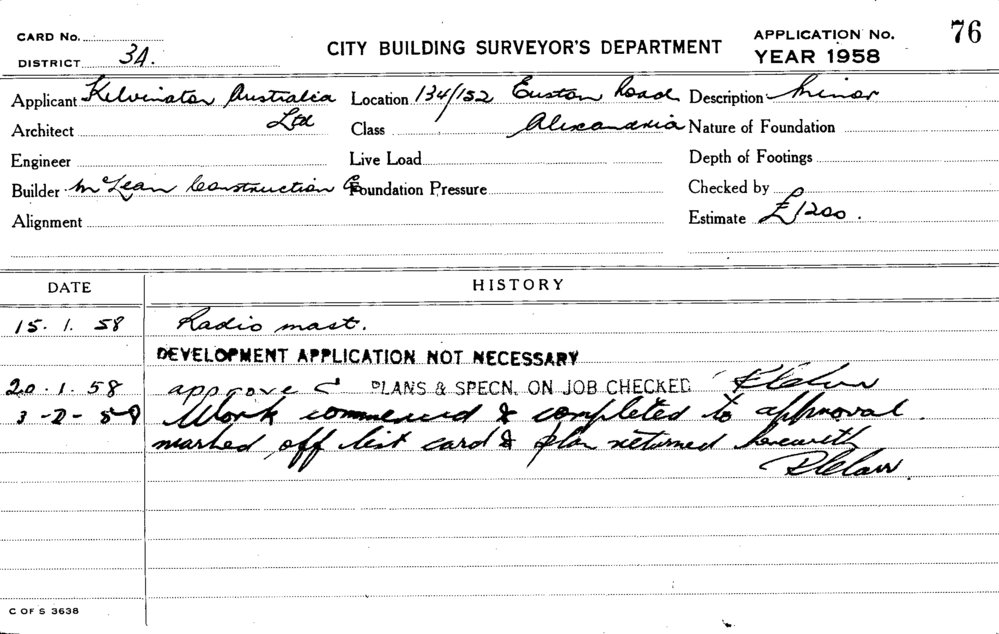 CARD No.
DISTRICT 3A.
CITY BUILDING SURVEYOR'S DEPARTMENT
APPLICATION No. 76
YEAR 1958
Applicant Kelvinator Australia Ltd
Location 134/152 Euston Road Alexandria
Description Minor
Architect
Class
Nature of Foundation
Engineer
Live Load
Depth of Footings
Builder McLean Construction Co
Foundation Pressure
Checked by
Alignment
Estimate £1200.
DATE
HISTORY
15. 1. 58 Radio mast.
DEVELOPMENT APPLICATION NOT NECESSARY
20. 1. 58 approved PLANS & SPECN. ON JOB CHECKED
3-2-58 Work commenced & completed to approval.
marked off list card & plan returned herewith
C OF S 3638